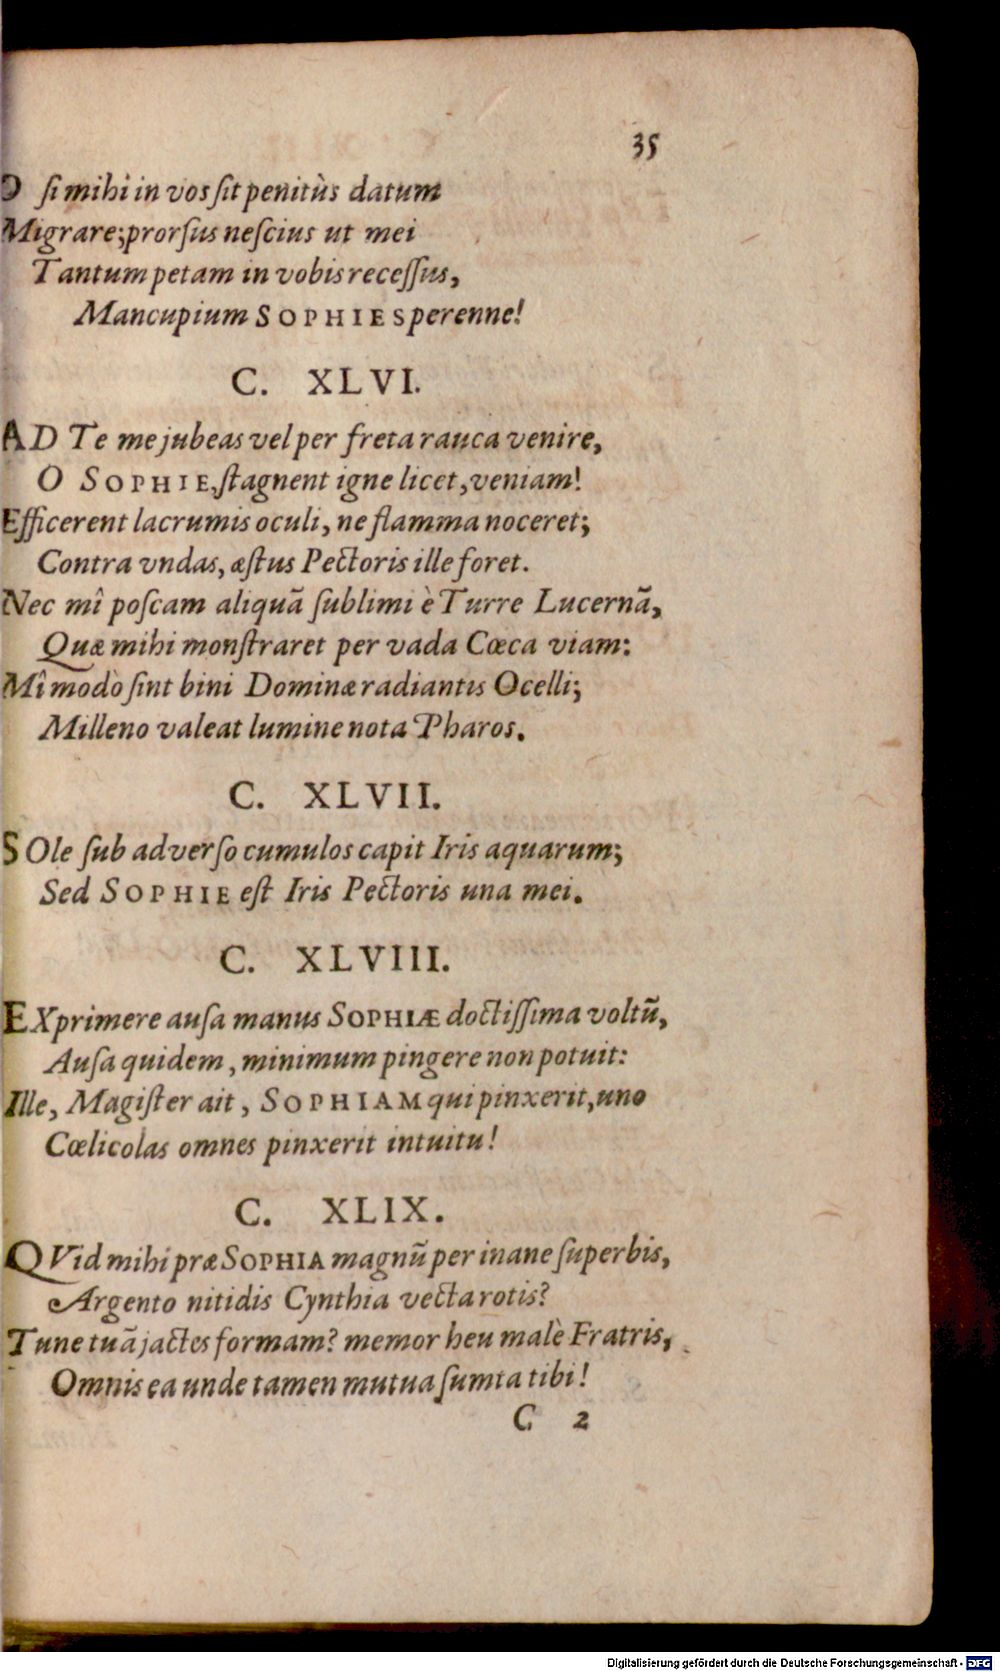 35
O ſi mihî in vos ſit penitùs datum
Migrare; prorſus neſcius ut mei
Tantum petam in vobis receſſus,
Mancupium SOPHIES perenne!
C. XLVI.
AD Te me jubeas vel per freta rauca venire,
O SOPHIE, ſtagnent igne licet, veniam!
Efficerent lacrumis oculi, ne flamma noceret;
Contra vndas, æſtus Pectoris ille foret.
Nec mî poſcam aliquã ſublimi è Turre Lucernã,
Quæ mihi monſtraret per vada Cœca viam:
Mî modò ſint bini Dominæ radiantis Ocelli;
Milleno valeat lumine nota Pharos.
C. XLVII.
SOle ſub adverſo cumulos capit Iris aquarum;
Sed SOPHIE eſt Iris Pectoris una mei.
C. XLVIII.
EXprimere auſa manus SOPHIÆ doctiſſima voltũ,
Auſa quidem, minimum pingere non potuit:
Ille, Magiſter ait, SOPHIAM qui pinxerit, uno
Cœlicolas omnes pinxerit intuitu!
C. XLIX.
QVid mihi præ SOPHIA magnũ per inane ſuperbis,
Argento nitidis Cynthia vecta rotis?
Tune tuã jactes formam? memor heu malè Fratris,
Omnis ea unde tamen mutua ſumta tibi!
C 2
Digitalisierung gefördert durch die Deutsche Forschungsgemeinschaft - DFG